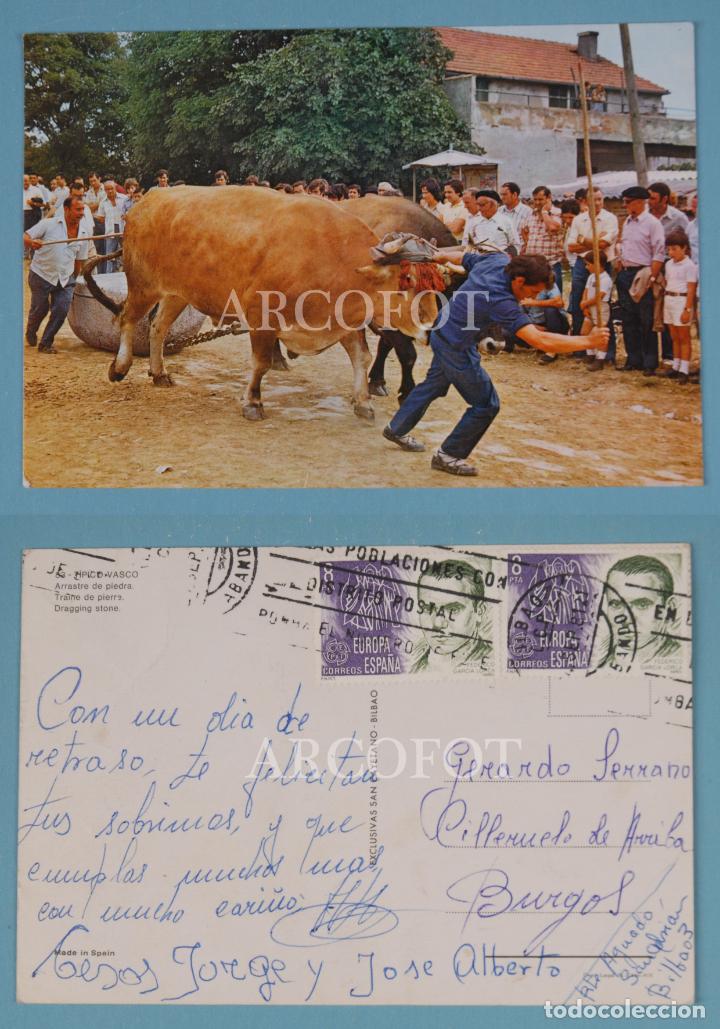 ARCOFOT
83 - TIPICO VASCO
Arrastre de piedra.
Traine de pierre.
Dragging stone.
LAS POBLACIONES CON
DISTRITO POSTAL
PONGA EL NUMERO
8
EUROPA
ESPAÑA
CORREOS
FEDERICO
GARCIA LORCA
8
PTA
EUROPA
ESPAÑA
CORREOS
FEDERICO
GARCIA LORCA
BILBAO
Con un dia de
retraso, te felicitan
tus sobrinos, y que
cumplas muchos mas
con mucho cariño.
Besos Jorge y Jose Alberto
Made in Spain
EXCLUSIVAS SAN CAYETANO - BILBAO
ARCOFOT
Gerardo Serrano
Cilleruelo de Arriba
Burgos
Aguado
San Adrian
Bilbao 3
todocoleccion